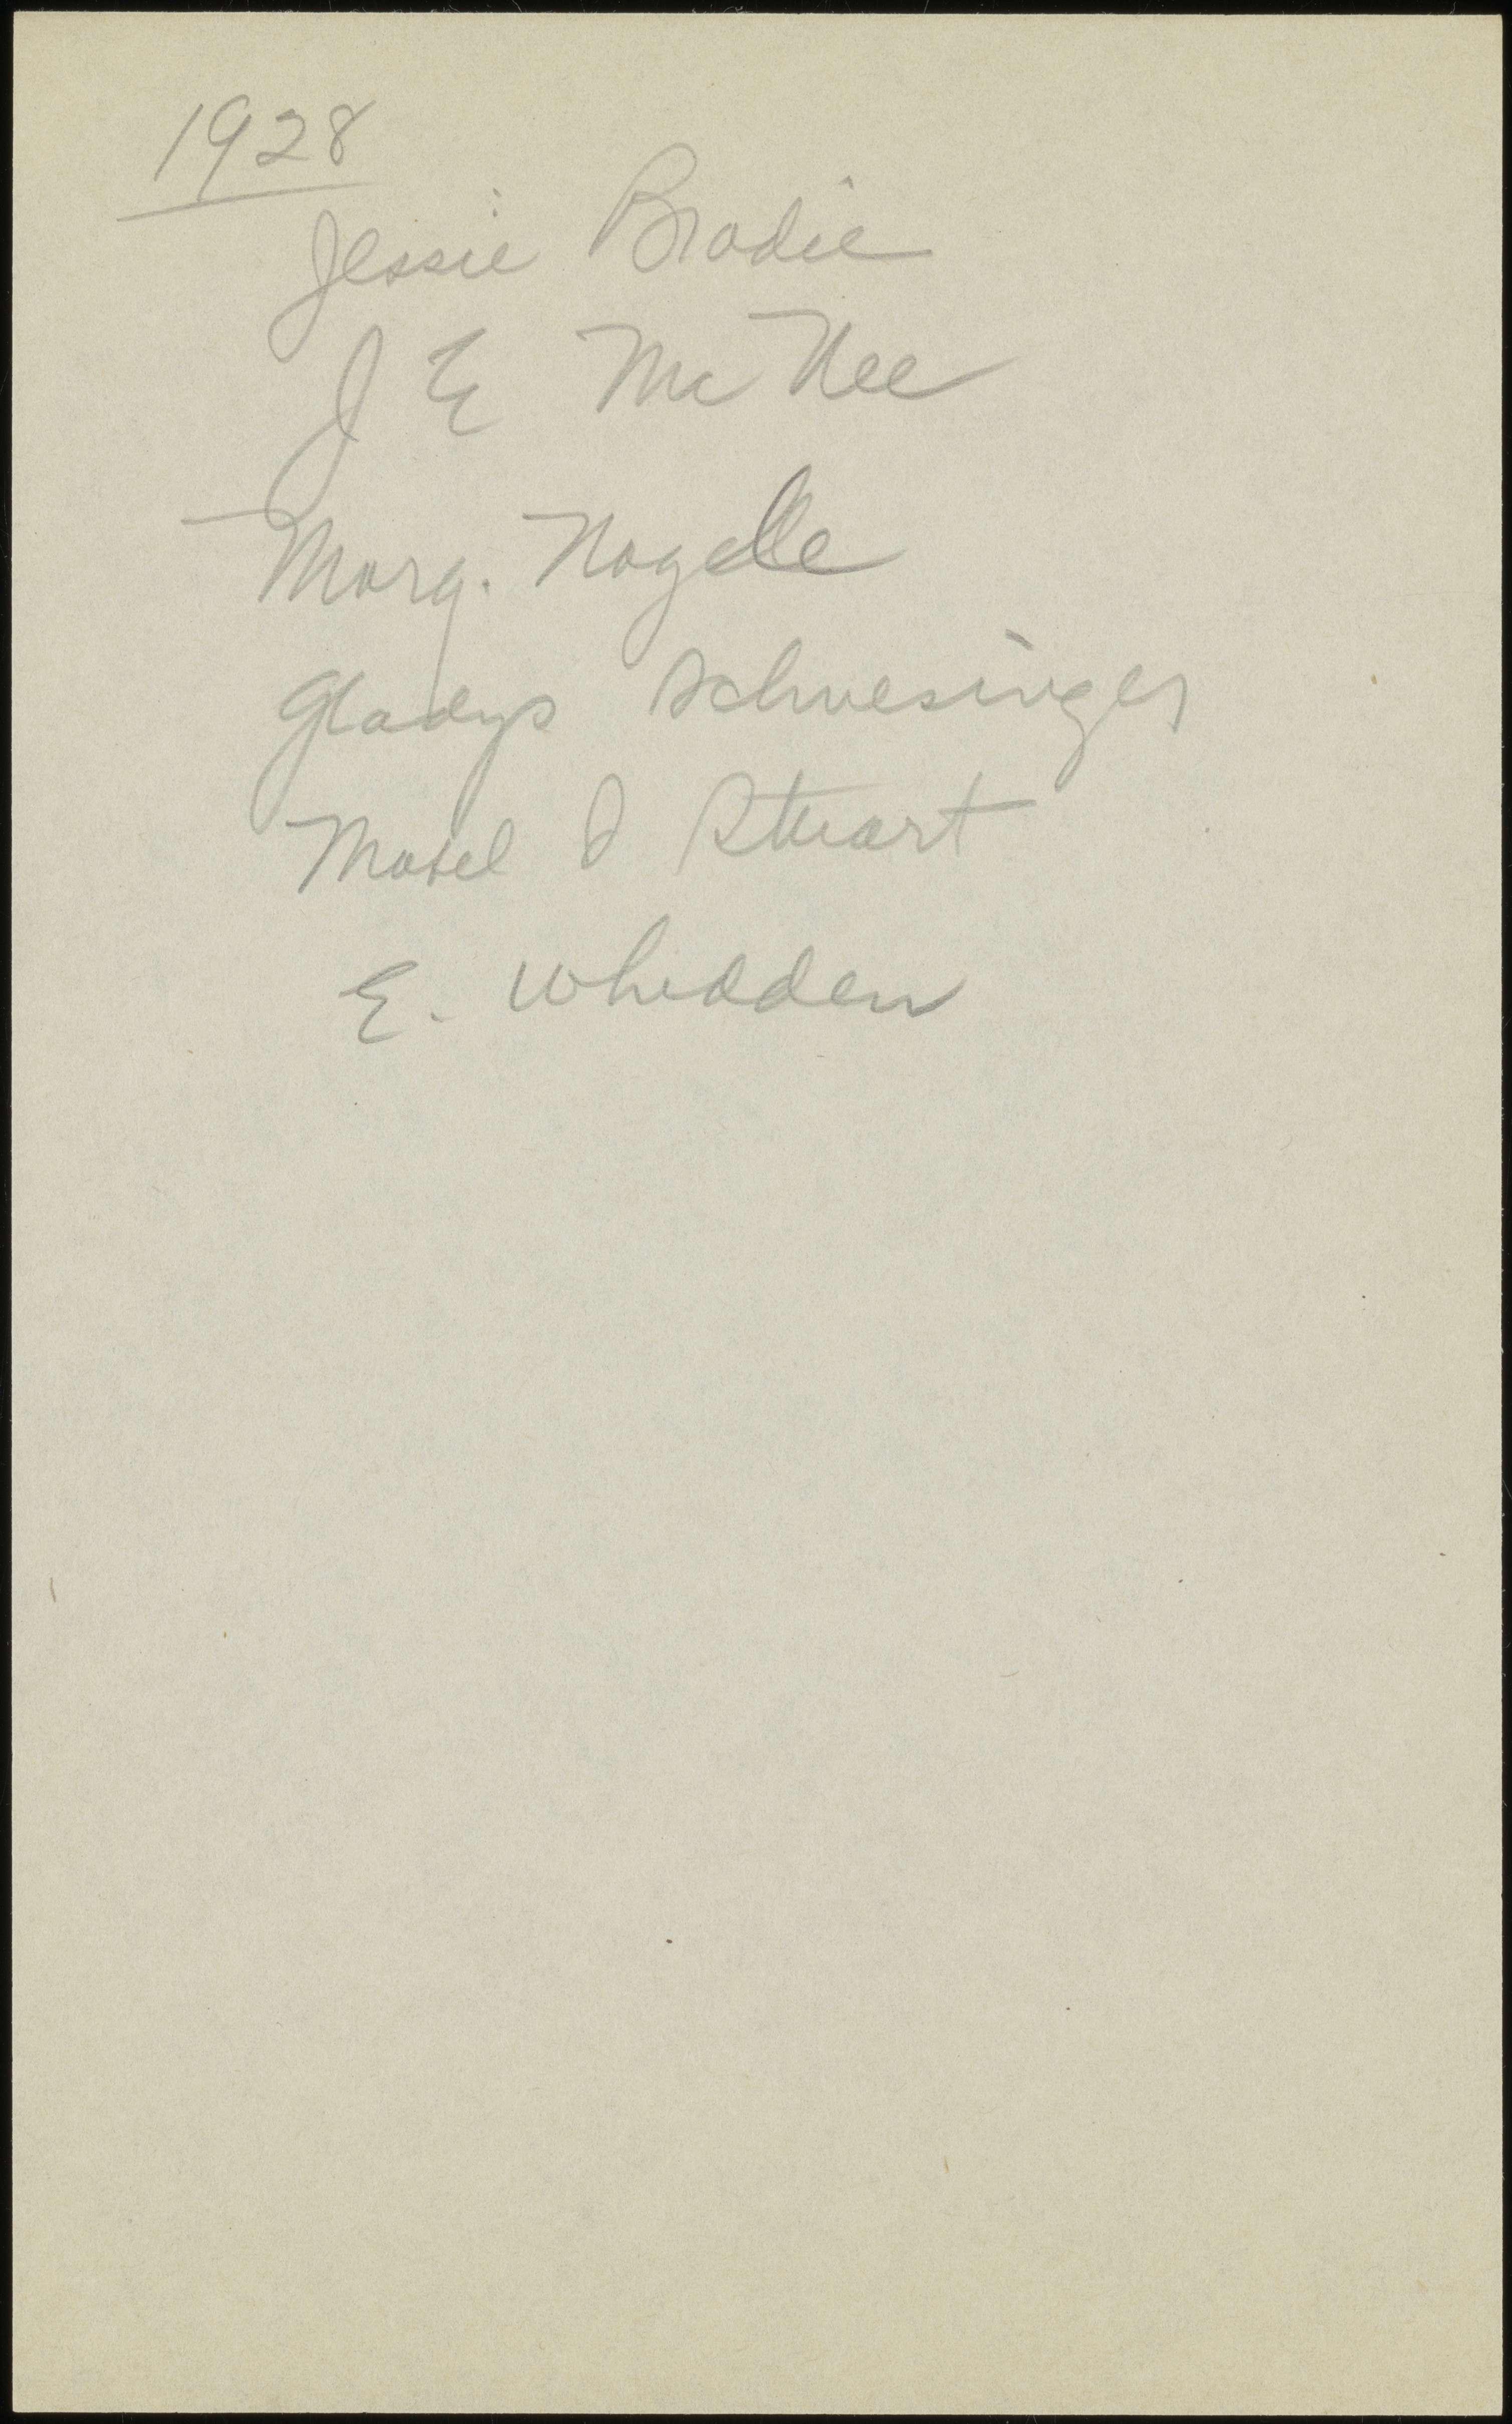 1928
Jessie Brodie
J E McNee
Marg. Nagelle
Gladys Schwesinger
Mabel I Stuart
E. Whidden